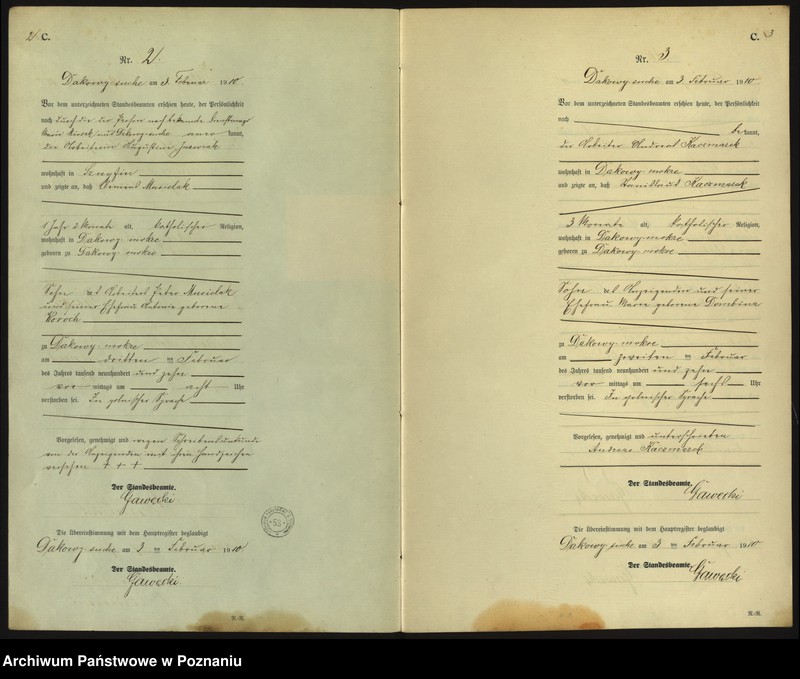 2 C.
Nr. 2.
Dakowy suche am 3. Februar 1910
Vor dem unterzeichneten Standesbeamten erschien heute, der Persönlichkeit
nach durch die der Person nach bekannte
aus Dakowy suche kannt,
die Arbeiterin Augustine
wohnhaft in
und zeigte an, daß Clemens Musielak
1 Jahr 2 Monate alt, katholischer Religion,
wohnhaft in Dakowy mokre
geboren zu Dakowy mokre
Sohn des Arbeiters Peter Musielak
und seiner Ehefrau Antonie geborene
zu Dakowy mokre
am dritten Februar
des Jahres tausend neunhundert und zehn
vor mittags um acht Uhr
verstorben sei. In polnischer Sprache
Vorgelesen, genehmigt und wegen Schreibensunkunde
von der Anzeigenden mit ihren Handzeichen
versehen + + +
Der Standesbeamte.
Gawecki
Die Übereinstimmung mit dem Hauptregister beglaubigt
Dakowy suche am 3 Februar 1910
Der Standesbeamte.
Gawecki
R.-R.
C. 3
Nr. 3
Dakowy suche am 3. Februar 1910
Vor dem unterzeichneten Standesbeamten erschien heute, der Persönlichkeit
nach
be kannt,
der Arbeiter Andreas Kaczmarek
wohnhaft in Dakowy mokre
und zeigte an, daß Stanislaus Kaczmarek
3 Monate alt, katholischer Religion,
wohnhaft in Dakowy mokre
geboren zu Dakowy mokre
Sohn des Anzeigenden und seiner
Ehefrau Marie geborene
zu Dakowy mokre
am zweiten Februar
des Jahres tausend neunhundert und zehn
vor mittags um sechs Uhr
verstorben sei. In polnischer Sprache
Vorgelesen, genehmigt und unterschrieben
Andreas Kaczmarek
Der Standesbeamte.
Gawecki
Die Übereinstimmung mit dem Hauptregister beglaubigt
Dakowy suche am 3 Februar 1910
Der Standesbeamte.
Gawecki
R.-R.
Archiwum Państwowe w Poznaniu